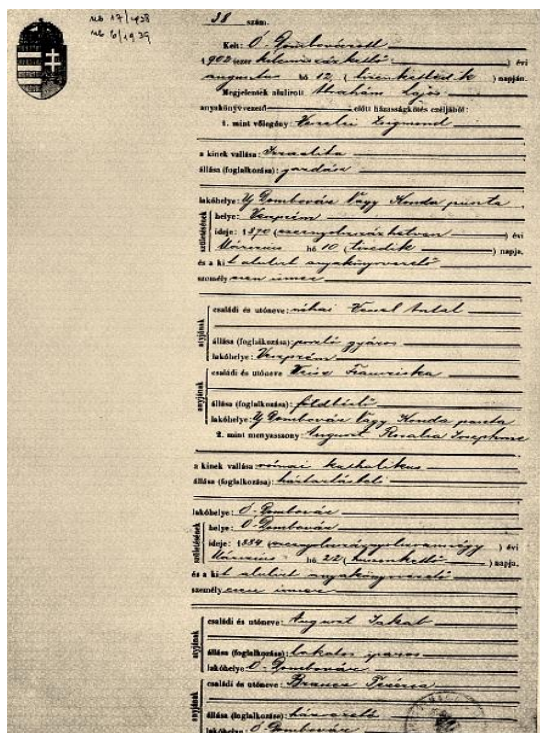 nb 17/1928
nb 6/1929
38 szám.
Kelt: Ó-Dombovárott
1902 ezer kilencszázkettő évi
augusztus hó 12 (tizenkettedik) napján.
Megjelentek alulirott Ábrahám Lajos
anyakönyvvezető előtt házasságkötés czéljából:
1. mint vőlegény: Zsigmond
a kinek vallása: Izraelita
állása (foglalkozása): gazdász
lakóhelye: Uj Dombovár Nagy Konda puszta
születésének
helye: Veszprém
ideje: 1870 (ezernyolczszázhetven) évi
Márczius hó 10 (tizedik) napja.
és a kit alulirt anyakönyvvezető
személyesen ismer
atyjának
családi és utóneve: néhai Antal
állása (foglalkozása): gyáros
lakóhelye: Veszprém
anyjának
családi és utóneve Weisz Francziska
állása (foglalkozása): földbérlő
lakóhelye: Uj Dombovár Nagy Konda puszta
2. mint menyasszony: August Rozalia Josephine
a kinek vallása: római katholikus
állása (foglalkozása): háztartásbeli
lakóhelye: Ó-Dombovár
születésének
helye: Ó-Dombovár
ideje: 1884 (ezernyolczszáznyolczvannégy) évi
Márczius hó 22 (huszonkettő) napja.
és a kit alulirt anyakönyvvezető
személyesen ismer
atyjának
családi és utóneve: August Jakab
állása (foglalkozása): lakatos iparos
lakóhelye: Ó-Dombovár
anyjának
családi és utóneve: Terézia
állása (foglalkozása): házvezető
lakóhelye: Ó-Dombovár